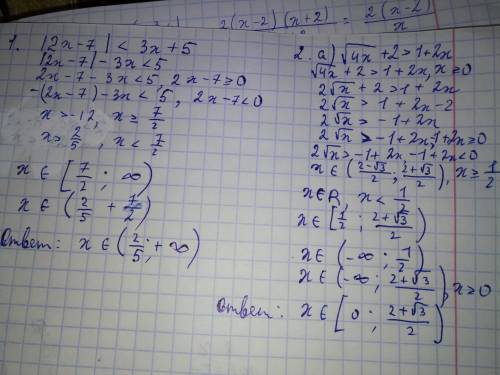 2(x-2)(x+2) = 2(x-2)/x
1. |2x-7| < 3x+5
|2x-7| - 3x < 5
2x-7-3x<5, 2x-7≥0
-(2x-7)-3x < 5, 2x-7<0
x > -12, x ≥ 7/2
x > 2/5, x < 7/2
x ∈ [7/2 ; ∞)
x ∈ (2/5 + 7/2)
Ответ: x ∈ (2/5 ; +∞)
2. a) √4x + 2 > 1+2x
√4x + 2 > 1 + 2x, x ≥ 0
2√x + 2 > 1 + 2x
2√x > 1 + 2x - 2
2√x > -1 + 2x
2√x > -1 + 2x, -1+2x ≥ 0
2√x > -1 + 2x, -1+2x < 0
x ∈ (2-√3/2 ; 2+√3/2), x ≥ 1/2
x ∈ R, x < 1/2
x ∈ [1/2 ; 2+√3/2)
x ∈ (-∞ ; 1/2)
x ∈ (-∞ ; 2+√3/2), x ≥ 0
Ответ: x ∈ [0 ; 2+√3/2)